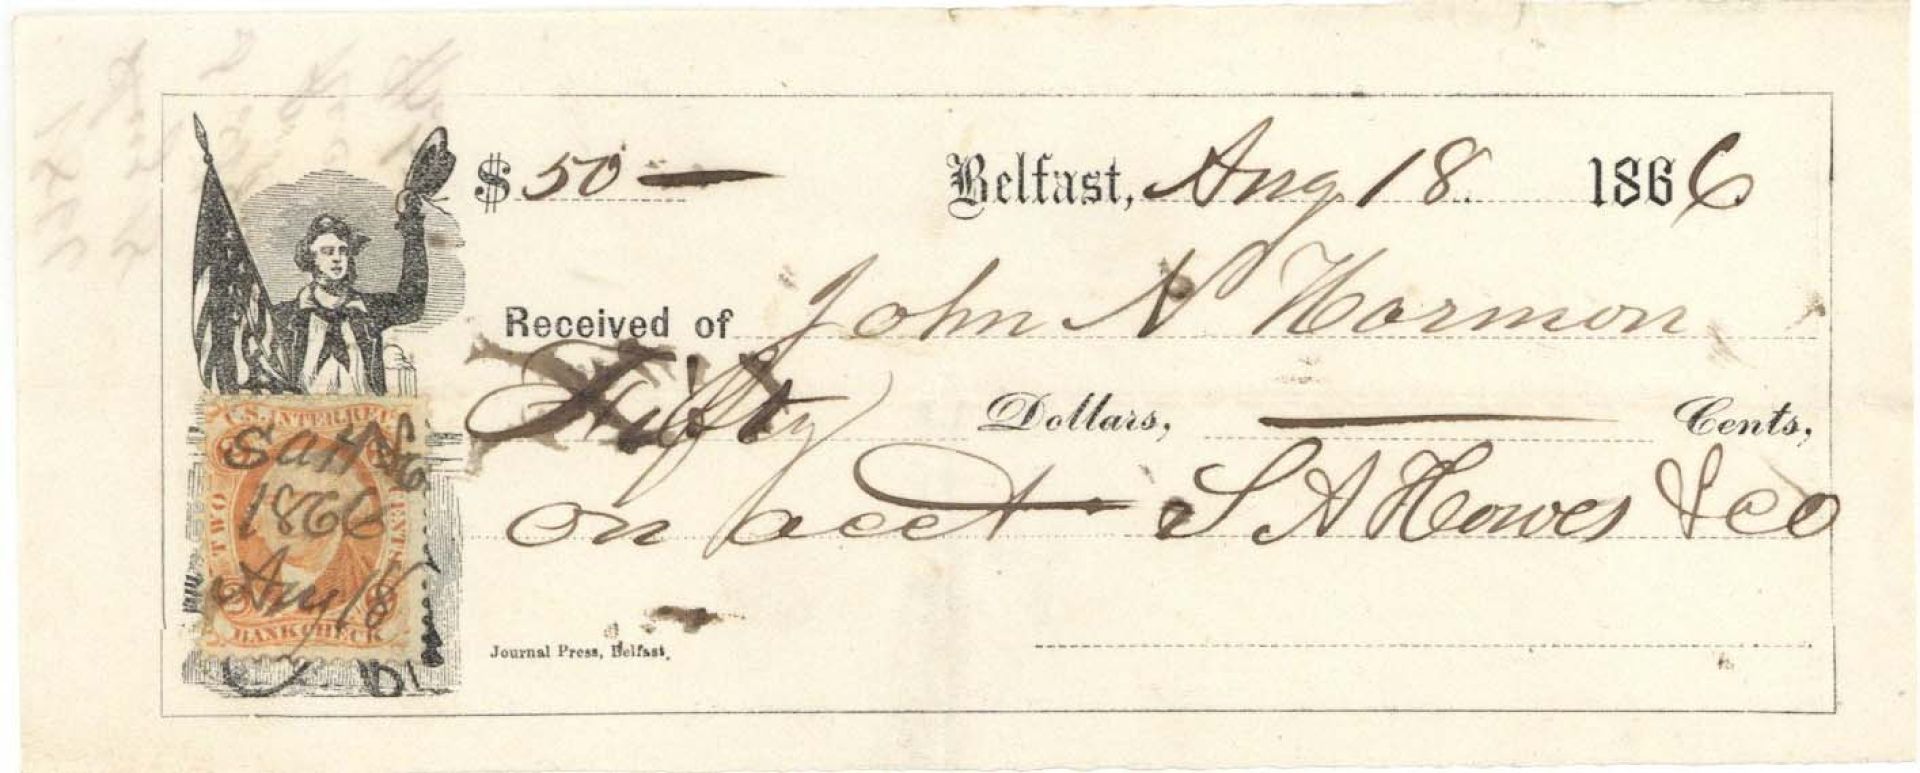 $ 50 — Belfast, Aug 18 1866
Received of John N Harmon
Fifty Dollars, — Cents,
on acct S A Howes & Co
Journal Press, Belfast.
U.S. INTER. REV.
TWO
CENTS
BANK CHECK
SAH&Co
1866
Aug 18